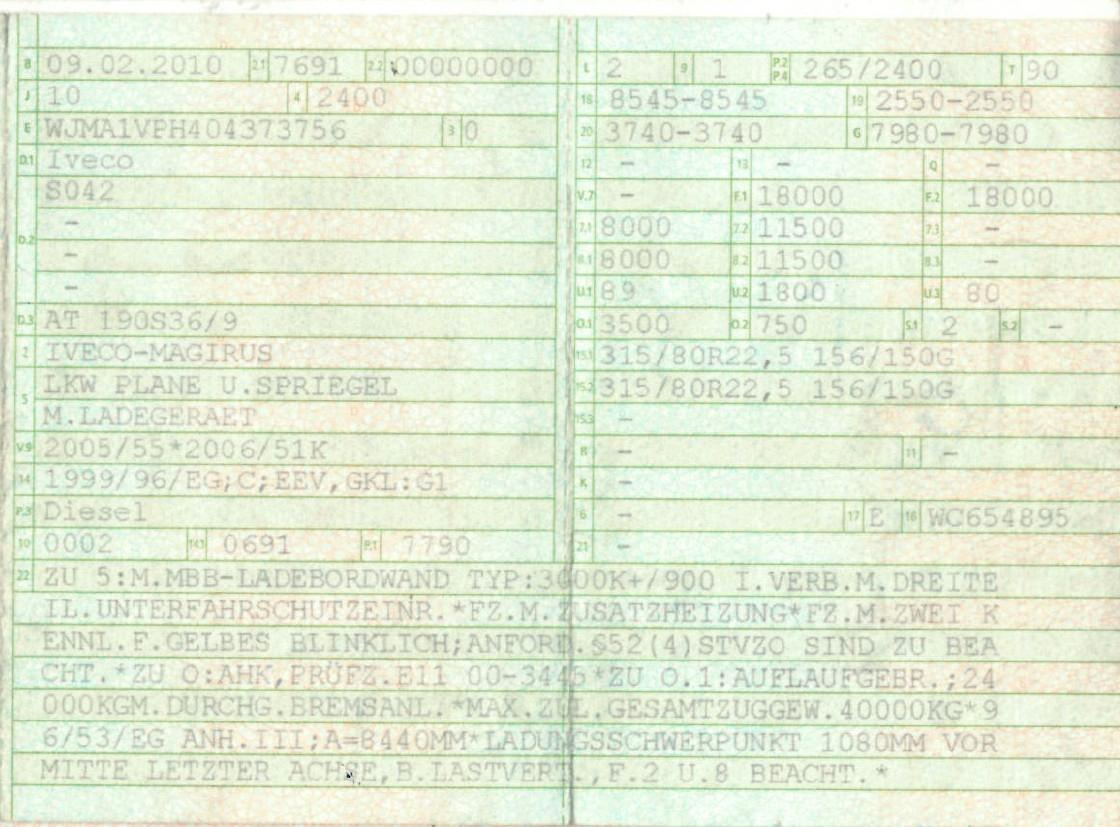 B 09.02.2010 2.1 7691 2.2 00000000
J 10 4 2400
E WJMA1VPH404373756 3 0
D.1 Iveco
S042
-
D.2
-
-
D.3 AT 190S36/9
2 IVECO-MAGIRUS
5 LKW PLANE U.SPRIEGEL
M.LADEGERAET
V.9 2005/55*2006/51K
14 1999/96/EG;C;EEV,GKL:G1
P.3 Diesel
10 0002 14.1 0691 P.1 7790
L 2 9 1 P.2 P.4 265/2400 T 90
18 8545-8545 19 2550-2550
20 3740-3740 G 7980-7980
12 - 13 - Q -
V.7 - F.1 18000 F.2 18000
7.1 8000 7.2 11500 7.3 -
8.1 8000 8.2 11500 8.3 -
U.1 89 U.2 1800 U.3 80
O.1 3500 O.2 750 S.1 2 S.2 -
15.1 315/80R22,5 156/150G
15.2 315/80R22,5 156/150G
15.3 -
R - 11 -
K -
6 - 17 E 16 WC654895
21 -
22 ZU 5:M.MBB-LADEBORDWAND TYP:3000K+/900 I.VERB.M.DREITE
IL.UNTERFAHRSCHUTZEINR.*FZ.M.ZUSATZHEIZUNG*FZ.M.ZWEI K
ENNL.F.GELBES BLINKLICH;ANFORD.§52(4)STVZO SIND ZU BEA
CHT.*ZU O:AHK,PRÜFZ.E11 00-3446*ZU O.1:AUFLAUFGEBR.;24
000KGM.DURCHG.BREMSANL.*MAX.ZUL.GESAMTZUGGEW.40000KG*9
6/53/EG ANH.III;A=8440MM*LADUNGSSCHWERPUNKT 1080MM VOR
MITTE LETZTER ACHSE,B.LASTVERT.,F.2 U.8 BEACHT.*